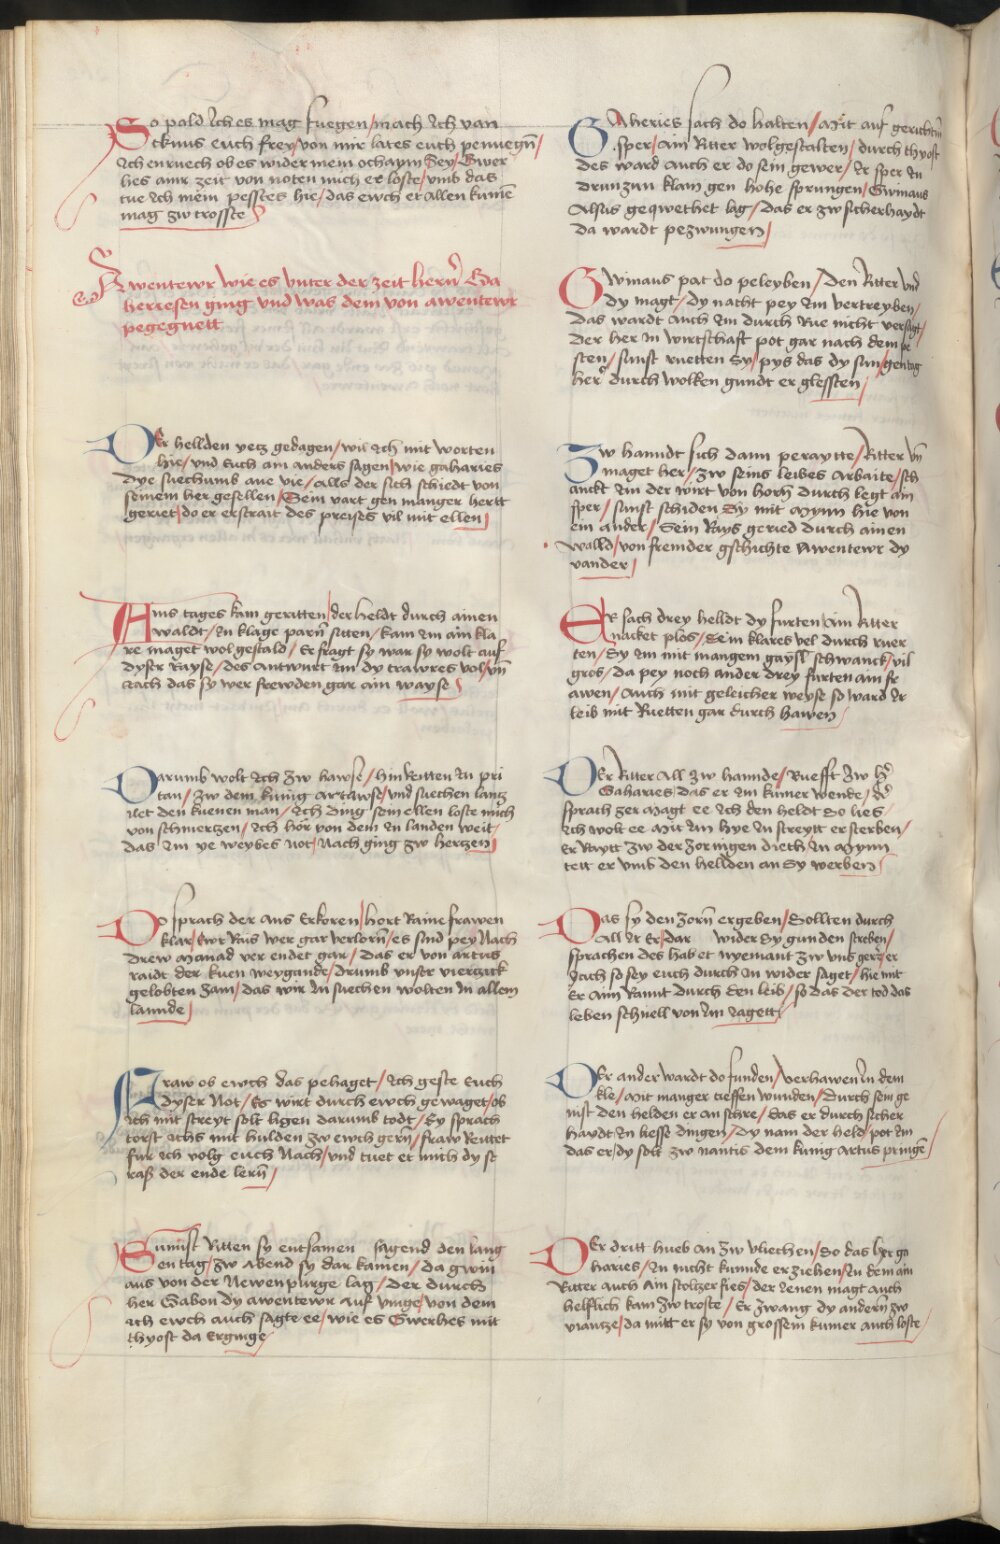 So pald Ich es mag fuegen / mach Ich van
Ckunis euch frey / von mir lates euch penuegn̄ /
Ich enruech ob es wider mein ochaym Sey / Gwer
hes amr zeit von noten mich er loste / vmb das
tue Ich mein pesstes hie / das ewch er Allen kume
mag zw trosste
Awentewr wie es vnter der zeit herrn̄ Ga
herresen ging vnd was dem von awentewr
pegegnett
Der hellden yetz gedagen / wil Ich mit worten
hie / vnd Euch am anders sagen / wie gaharies
Dye suechums aue vie / Alls der sich schiedt von
seinem her gesellen / Sein vart gen manger hertt
geriet / do er erstrait des preises vil mit ellen /
Ains tages kam geritten / der heldt durch ainen
waldt / In klage parn̄ sitten / kam Im ain kla
re maget wol gestald / Er fragt sy war sy wolt auf
dyser Rayse / des Antwurt Im dy trawres vol / vn̄
Iach das sy wer frewden gar ain wayse /
Darumb wolt Ich zw hawse / hin Reitten In pri
tan / zw dem kunig Artawse / vnd suechen lantz
ilet den kuenen man / Ich ding sein ellen loste mich
von schmertzen / Ich hör von dem In landen weit /
das Im ye weybes not / Nach ging zw hertzen /
Do sprach der Aus Erkoren / hort Raine frawen
klar / Ewr Rais wer gar verlorn̄ / es sind pey Nach
drew Manad ver endet gar / Das er von Artus
raidt der kuen weygande / Drumb vnser vierzick
gelobten zam / das wir In suechen wolten In allem
lannde /
Fraw ob ewch das pehaget / Ich geste Euch
dyser Not / Es wirt durch ewch gewaget / ob
Ich mit streyt solt ligen darumb todt / Sy sprach
torst Ichs mit hulden zw ewch gern̄ / fraw Reitet
fur Ich volg euch Nach / vnd tuet et mich dy st
raß der ende lern̄ /
Sunnst Ritten sy entsamen sagend den lang
en tag / zw Abend sy dar kamen / da gwin
aus von der Newenpurge lag / der durch
her Gabon dy awentewr Auf vinge / von dem
Ich ewch auch sagte ee / wie es Gwerhes mit
thyost da Erginge /
Gaheries sach do halten / Mit auf gerichtm̄
sper / Ain Ritter wolgestalten / durch thyost
des ward auch er do sein gewer / Ir sper In
drunzun klam gen hohe sprungen / Gwinaus
Alsus geqwethet lag / Das er zw sicherhaydt
da wardt pezwungen /
Gwinaus pat do peleyben / Den Ritter vnd
dy magt / dy nacht pey Im vertreyben /
das wardt Auch Im durch Rue nicht versagt /
der her In wirtschaft pot gar nach dem pe
sten / sunst ruetten Sy / pys das dy sun / gen tag
her durch wolken gundt er glessten /
Zw hanndt sich dann peraytte / Ritter vn̄
maget her / zw seins leibes Arbaite / sch
anckt Im der wirt von horn̄ durch legt ain
sper / sunst schiden Sy mit Mynn hie von
ein ander / Sein Rays geried durch ainen
walld / von fremder gschichte Awentewr dy
vander /
Er sach drey helldt dy furten / ain Ritter
nacket plos / Sein klares vel durch ruer
ten / Sy Im mit mangem gaysl schwanck / vil
gros / da pey noch ander drey furten ain fr
awen / Auch mit geleicher weyse so ward Ir
leib mit Ruetten gar durch hawen /
Der Ritter All zw hannde / Ruefft zw hr̄
Gaharies / das er Im kumer wende / dr̄
sprach zer Magt ee Ich den heldt so lies /
Ich wolt ee Mit Im hye In streytt er sterben /
Er Raytt zw der zornigen dieth In Mynn
tett er vmb den hellden an Sy werben /
Das sy den zorn̄ ergeben / Sollten durch
All Ir Er / Dar wider Sy gunden streben /
sprachen des hab et nyemant zw vns gerer
Iach so sey euch durch In wider saget / hie mit
Er Ainn Rannt durch den leib / so das der tod das
leben schnell von Im Iagett /
Der ander wardt do funden / verhawen In dem
kle / Mit manger tieffen wunden / durch sein ge
nist den helden er an schre / das er durch sicher
haydt In liesse dingen / Dy nam der held / pot im
das er / dy solt zw nantis dem kunig Artus pringe /
Der dritt hueb an zw vliechen / Do das her ga
haries / In nicht kunnde er ziehen / In dem ain
Ritter auch Ain stoltzer sies / der Ienen magt auch
helflich kam zw troste / Er zwang dy andern̄ zw
viantze / da mitt er sy von grossem kumer auch loste /